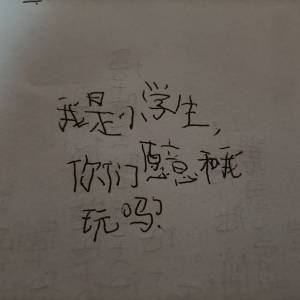 我是小学生，
你们愿意和我
玩吗？